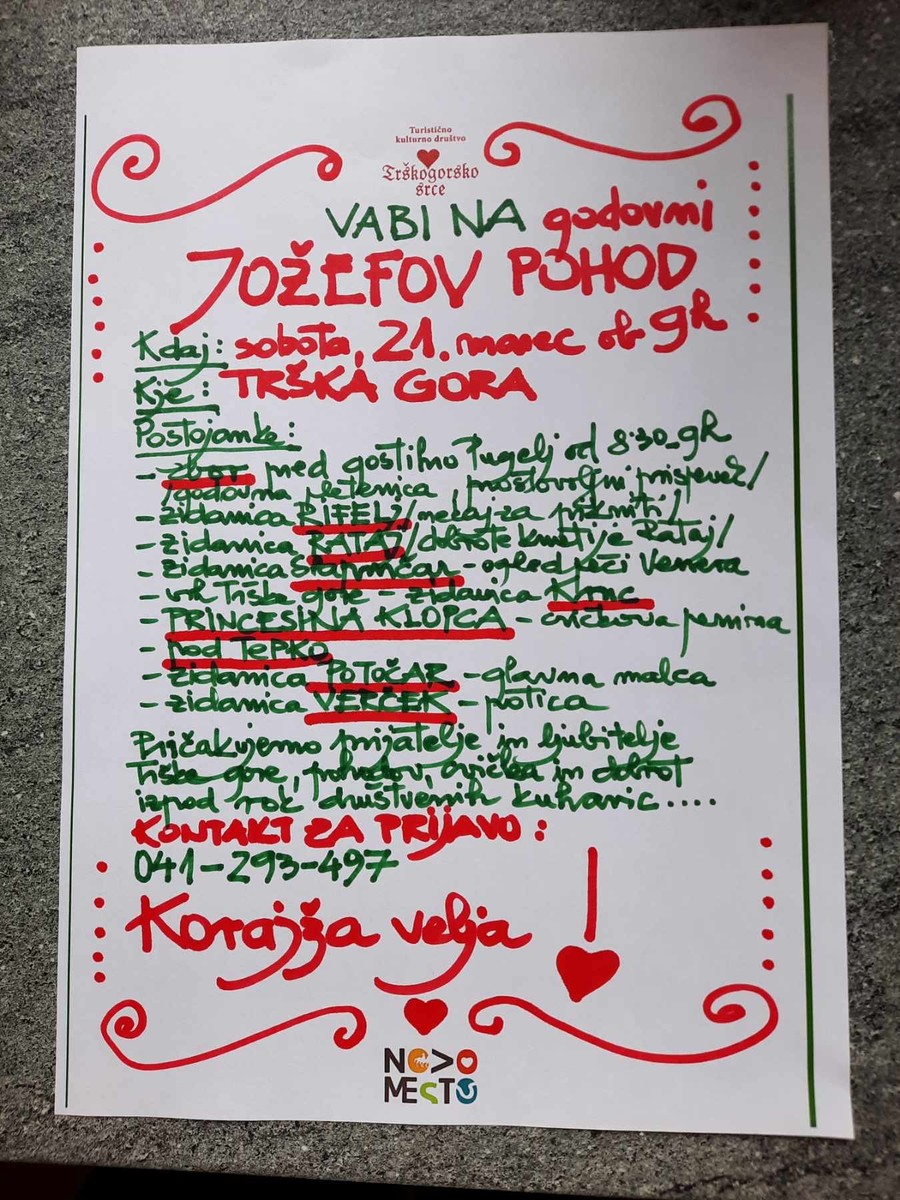 Turistično
kulturno društvo
Trškogorsko
srce
VABI NA godovni
JOŽEFOV POHOD
Kdaj: sobota, 21. marec ob 9h
Kje: TRŠKA GORA
Postojanke:
- zbor pred gostilno Pugelj od 8.30-9h
/godovna pletenica, prostovoljni prispevek/
- zidanica RIFELJ /nekaj za prikmiti/
- zidanica RATAJ /dobrote kmetije Rataj/
- zidanica - ogled peči Venera
- vrh Trške gore - zidanica Krnc
- PRINCESINA KLOPCA - cvičkova penina
- pod TEPKO
- zidanica POTOČAR - glavna malca
- zidanica VERČEK - potica
Pričakujemo prijatelje in ljubitelje
Trške gore, pohodov, cvička in dobrot
izpod rok društvenih kuharic....
KONTAKT ZA PRIJAVO:
041-293-497
Korajža velja
NOVO
MESTO